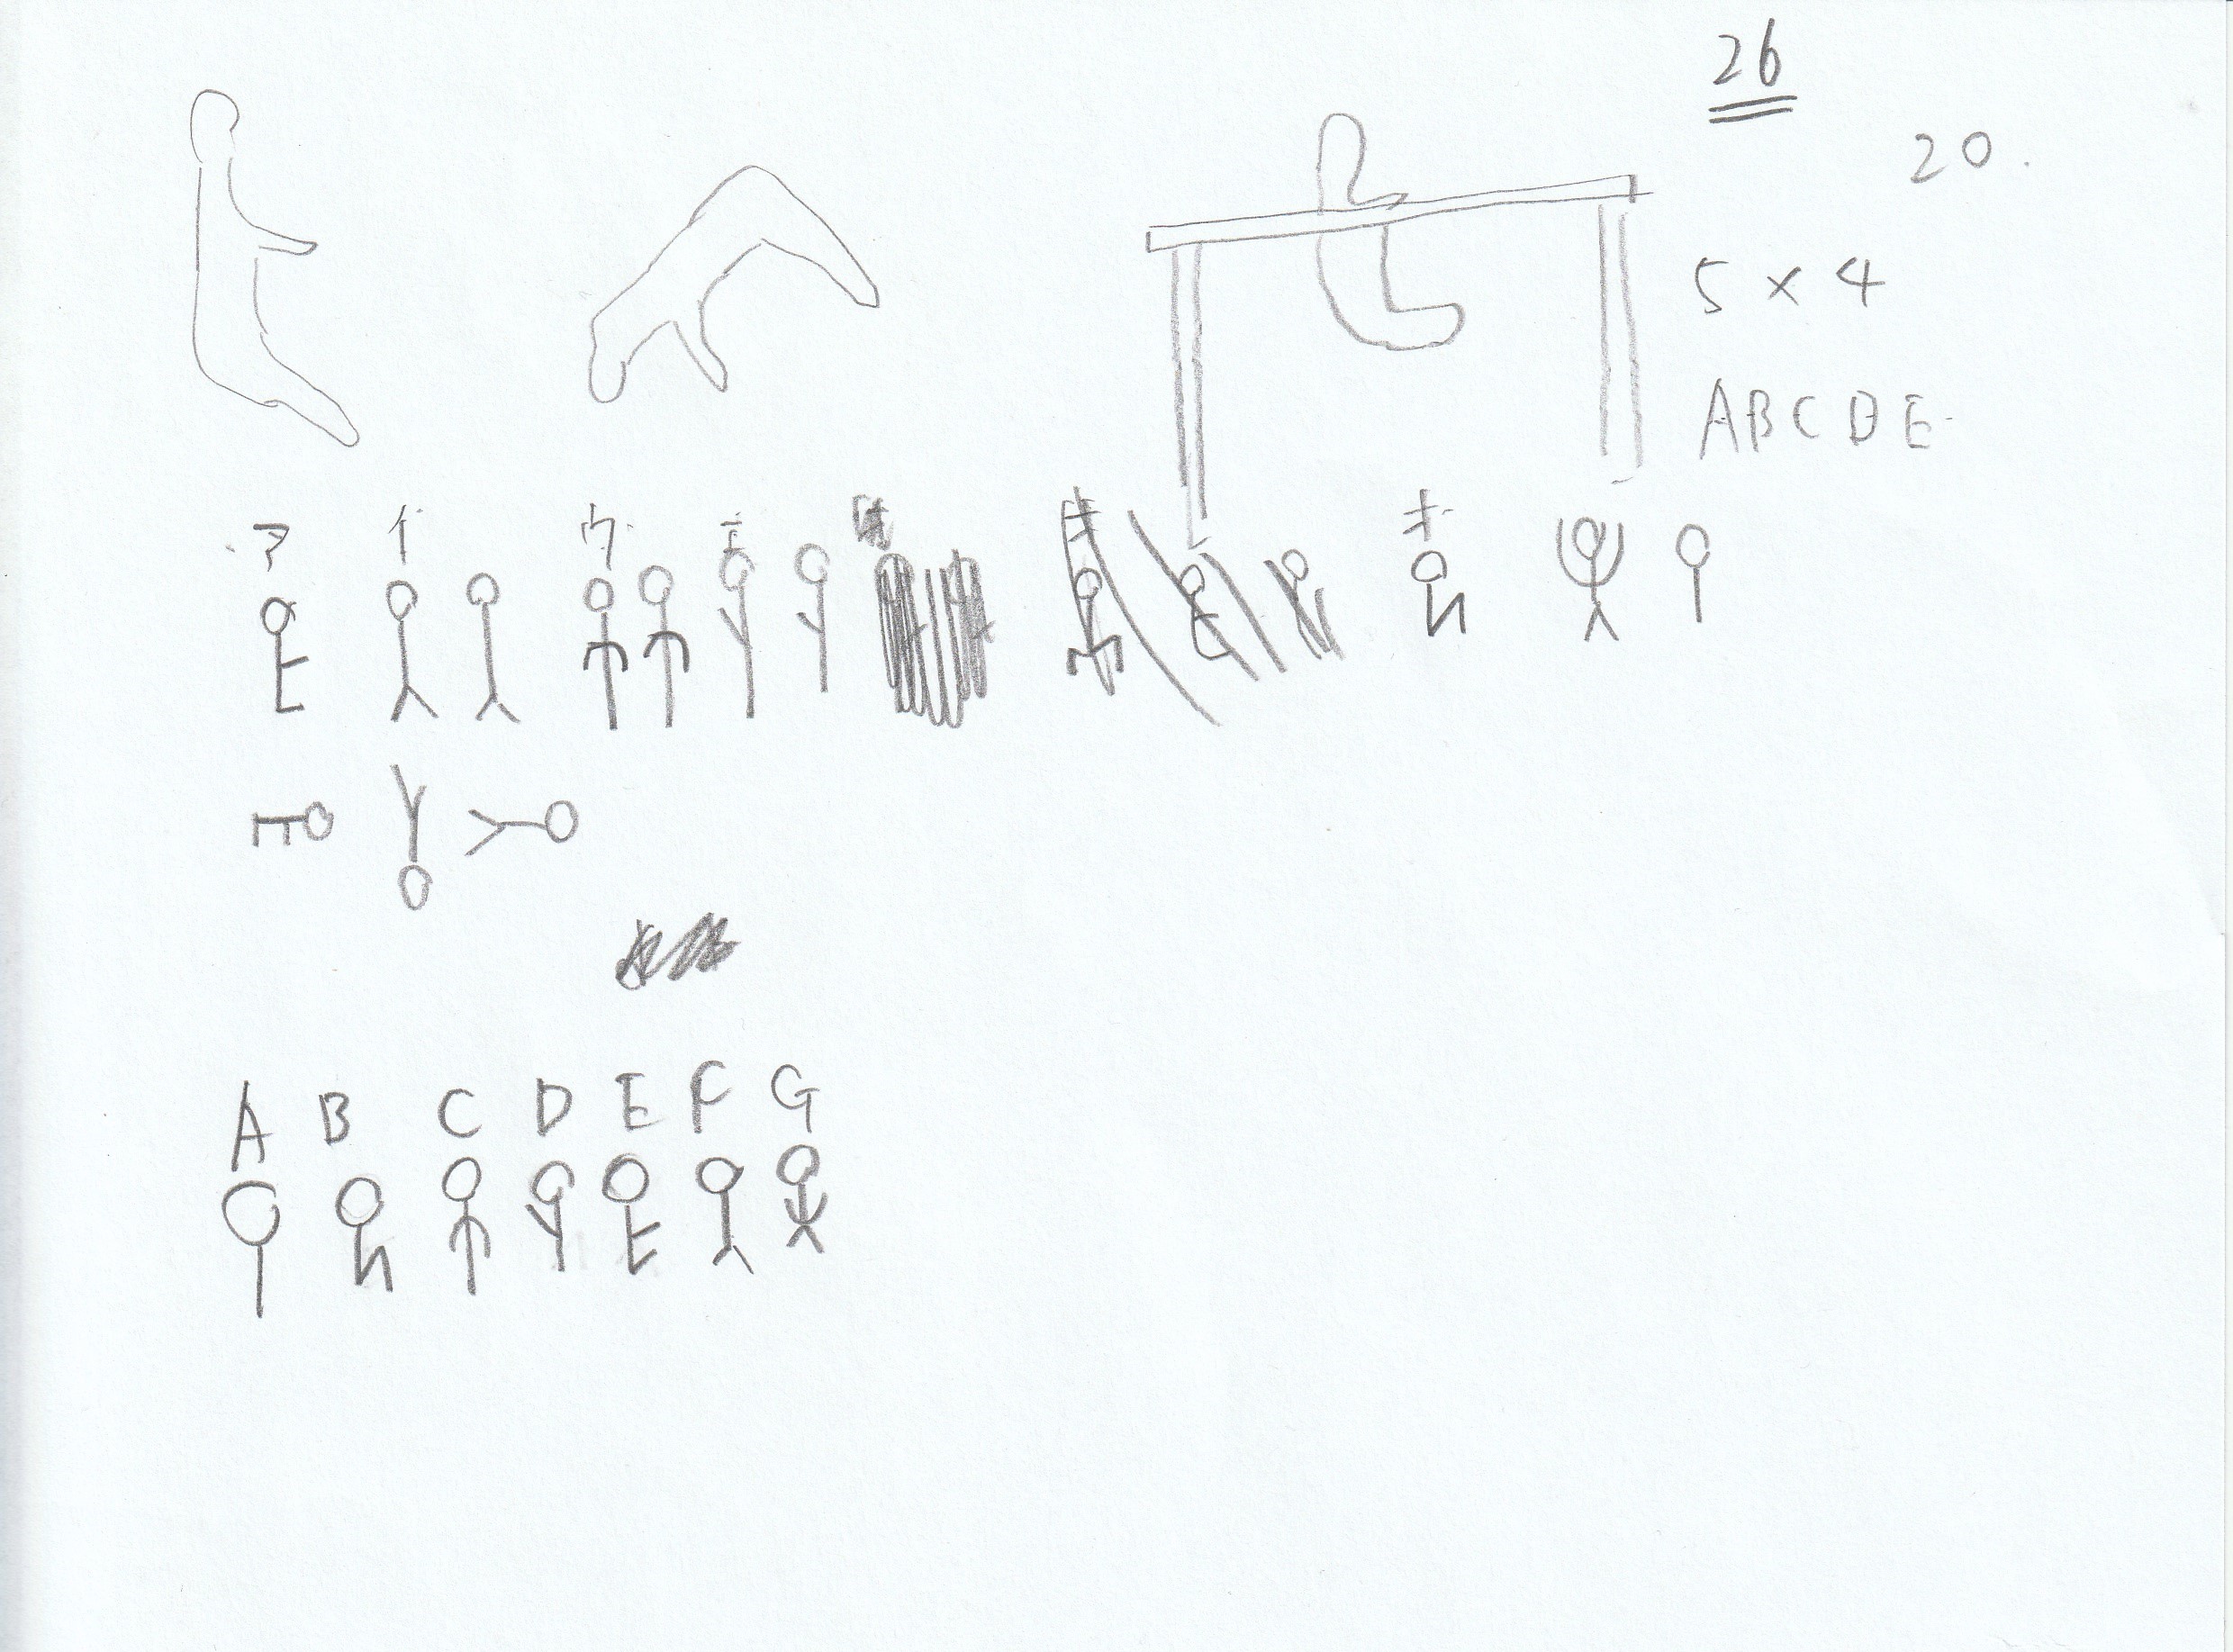 26
20.
5 × 4
A B C D E
ア イ ウ エ オ
A B C D E F G